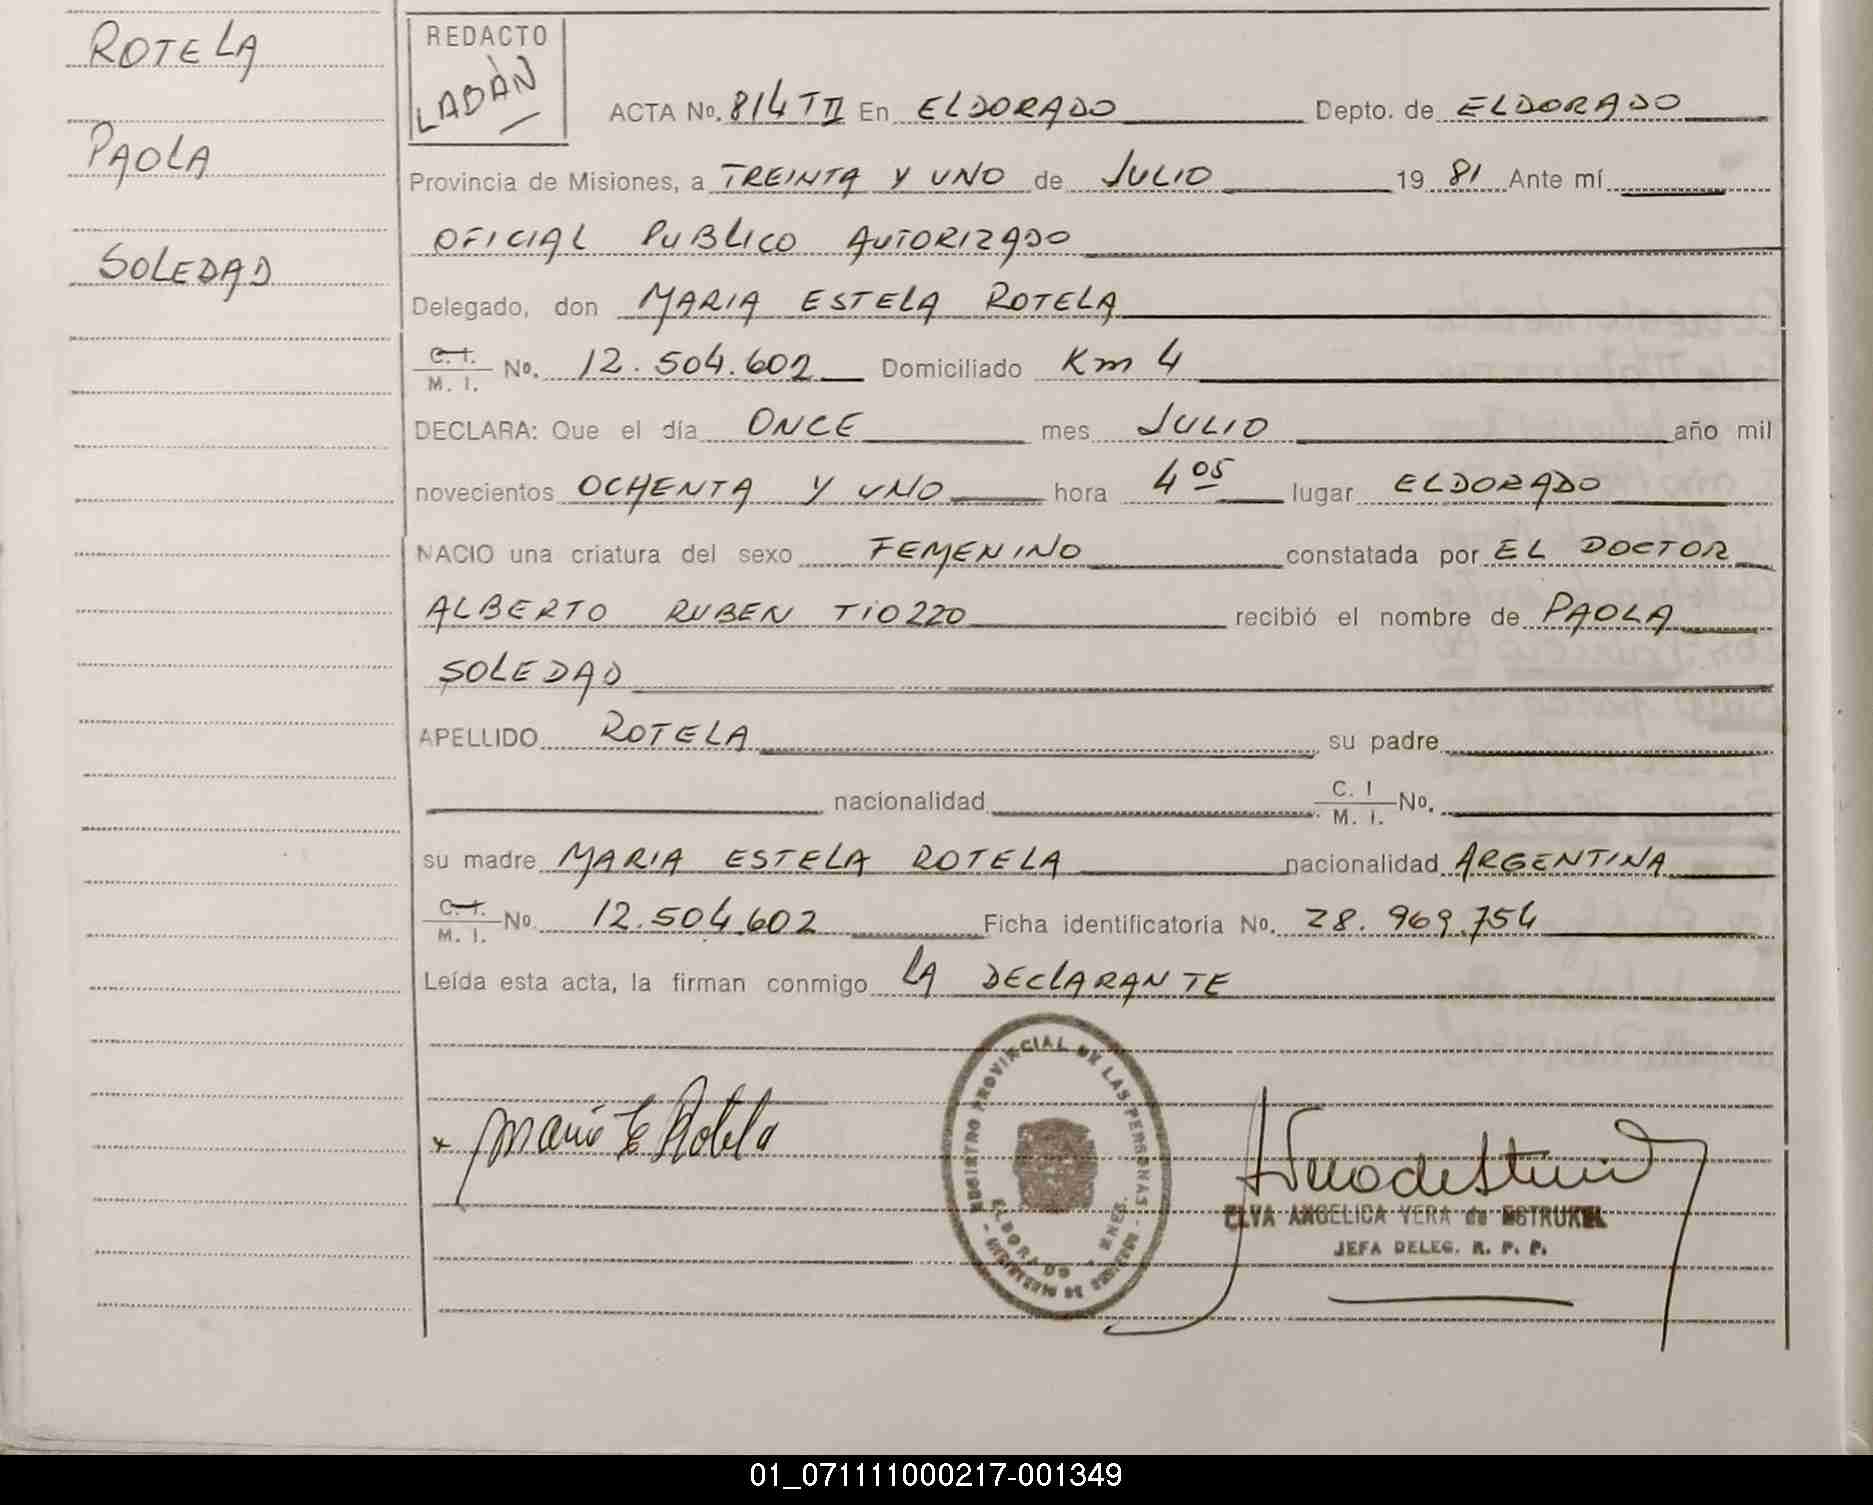 ROTELA
PAOLA
SOLEDAD
REDACTO
LABÀN
ACTA No. 814 TII En ELDORADO Depto. de ELDORADO
Provincia de Misiones, a TREINTA Y UNO de JULIO 19 81 Ante mí
OFICIAL PUBLICO AUTORIZADO
Delegado, don MARIA ESTELA ROTELA
C. I.
M. I. No. 12.504.602 Domiciliado Km 4
DECLARA: Que el día ONCE mes JULIO año mil
novecientos OCHENTA Y UNO hora 4 05 lugar ELDORADO
NACIO una criatura del sexo FEMENINO constatada por EL DOCTOR
ALBERTO RUBEN TIOZZO recibió el nombre de PAOLA
SOLEDAD
APELLIDO ROTELA su padre
nacionalidad C. I
M. I. No.
su madre MARIA ESTELA ROTELA nacionalidad ARGENTINA
C. I.
M. I. No. 12.504.602 Ficha identificatoria No. 28.969.754
Leída esta acta, la firman conmigo LA DECLARANTE
x Maria E Rotela
REGISTRO PROVINCIAL DE LAS PERSONAS
ELDORADO MNES.
ELVA ANGELICA VERA de ESTRUKEL
JEFA DELEG. R. P. P.
01_071111000217-001349